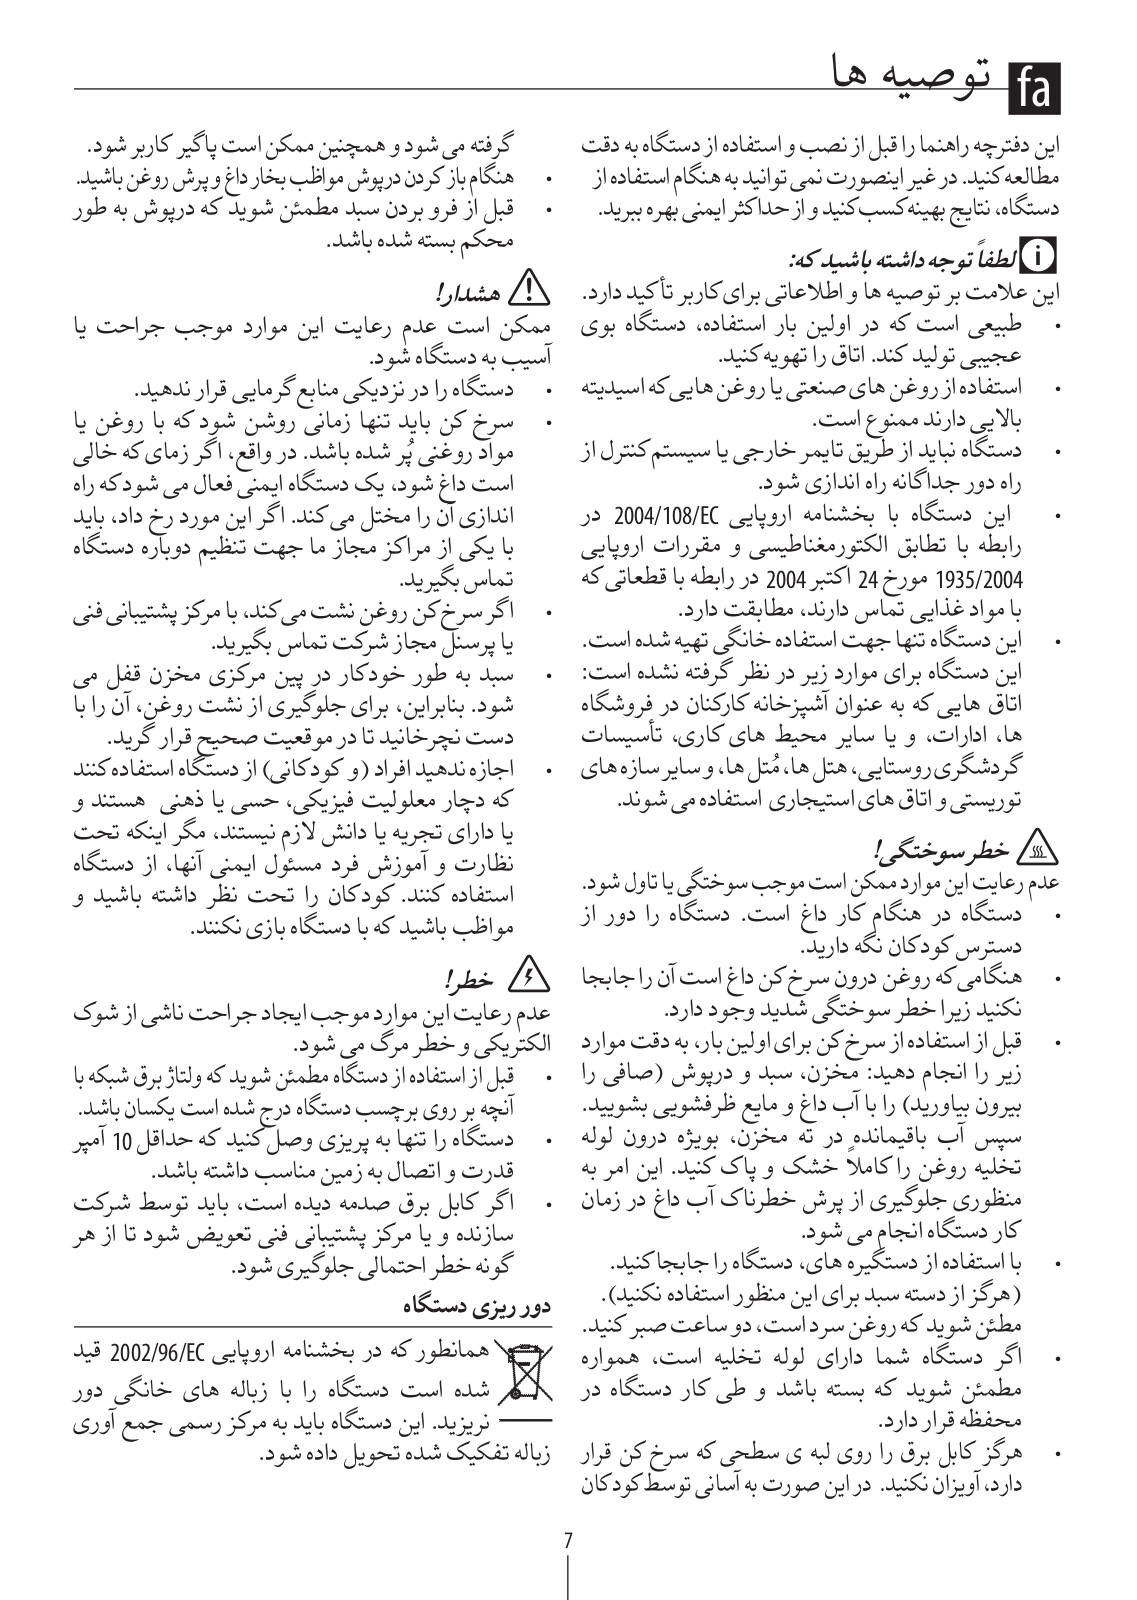 fa توصیه ها
این دفترچه راهنما را قبل از نصب و استفاده از دستگاه به دقت
مطالعه کنید. در غیر اینصورت نمی توانید به هنگام استفاده از
دستگاه، نتایج بهینه کسب کنید و از حداکثر ایمنی بهره ببرید.
لطفاً توجه داشته باشید که:
این علامت بر توصیه ها و اطلاعاتی برای کاربر تأکید دارد.
• طبیعی است که در اولین بار استفاده، دستگاه بوی
عجیبی تولید کند. اتاق را تهویه کنید.
• استفاده از روغن های صنعتی یا روغن هایی که اسیدیته
بالایی دارند ممنوع است.
• دستگاه نباید از طریق تایمر خارجی یا سیستم کنترل از
راه دور جداگانه راه اندازی شود.
• این دستگاه با بخشنامه اروپایی 2004/108/EC در
رابطه با تطابق الکتورمغناطیسی و مقررات اروپایی
1935/2004 مورخ 24 اکتبر 2004 در رابطه با قطعاتی که
با مواد غذایی تماس دارند، مطابقت دارد.
• این دستگاه تنها جهت استفاده خانگی تهیه شده است.
این دستگاه برای موارد زیر در نظر گرفته نشده است:
اتاق هایی که به عنوان آشپزخانه کارکنان در فروشگاه
ها، ادارات، و یا سایر محیط های کاری، تأسیسات
گردشگری روستایی، هتل ها، مُتل ها، و سایر سازه های
توریستی و اتاق های استیجاری استفاده می شوند.
خطر سوختگی!
عدم رعایت این موارد ممکن است موجب سوختگی یا تاول شود.
• دستگاه در هنگام کار داغ است. دستگاه را دور از
دسترس کودکان نگه دارید.
• هنگامی که روغن درون سرخ کن داغ است آن را جابجا
نکنید زیرا خطر سوختگی شدید وجود دارد.
• قبل از استفاده از سرخ کن برای اولین بار، به دقت موارد
زیر را انجام دهید: مخزن، سبد و درپوش (صافی را
بیرون بیاورید) را با آب داغ و مایع ظرفشویی بشویید.
سپس آب باقیمانده در ته مخزن، بویژه درون لوله
تخلیه روغن را کاملاً خشک و پاک کنید. این امر به
منظوری جلوگیری از پرش خطرناک آب داغ در زمان
کار دستگاه انجام می شود.
• با استفاده از دستگیره های، دستگاه را جابجا کنید.
(هرگز از دسته سبد برای این منظور استفاده نکنید).
مطئن شوید که روغن سرد است، دو ساعت صبر کنید.
• اگر دستگاه شما دارای لوله تخلیه است، همواره
مطمئن شوید که بسته باشد و طی کار دستگاه در
محفظه قرار دارد.
• هرگز کابل برق را روی لبه ی سطحی که سرخ کن قرار
دارد، آویزان نکنید. در این صورت به آسانی توسط کودکان
گرفته می شود و همچنین ممکن است پاگیر کاربر شود.
• هنگام باز کردن درپوش مواظب بخار داغ و پرش روغن باشید.
• قبل از فرو بردن سبد مطمئن شوید که درپوش به طور
محکم بسته شده باشد.
هشدار!
ممکن است عدم رعایت این موارد موجب جراحت یا
آسیب به دستگاه شود.
• دستگاه را در نزدیکی منابع گرمایی قرار ندهید.
• سرخ کن باید تنها زمانی روشن شود که با روغن یا
مواد روغنی پُر شده باشد. در واقع، اگر زمای که خالی
است داغ شود، یک دستگاه ایمنی فعال می شود که راه
اندازی آن را مختل می کند. اگر این مورد رخ داد، باید
با یکی از مراکز مجاز ما جهت تنظیم دوباره دستگاه
تماس بگیرید.
• اگر سرخ کن روغن نشت می کند، با مرکز پشتیبانی فنی
یا پرسنل مجاز شرکت تماس بگیرید.
• سبد به طور خودکار در پین مرکزی مخزن قفل می
شود. بنابراین، برای جلوگیری از نشت روغن، آن را با
دست نچرخانید تا در موقعیت صحیح قرار گرید.
• اجازه ندهید افراد (و کودکانی) از دستگاه استفاده کنند
که دچار معلولیت فیزیکی، حسی یا ذهنی هستند و
یا دارای تجریه یا دانش لازم نیستند، مگر اینکه تحت
نظارت و آموزش فرد مسئول ایمنی آنها، از دستگاه
استفاده کنند. کودکان را تحت نظر داشته باشید و
مواظب باشید که با دستگاه بازی نکنند.
خطر!
عدم رعایت این موارد موجب ایجاد جراحت ناشی از شوک
الکتریکی و خطر مرگ می شود.
• قبل از استفاده از دستگاه مطمئن شوید که ولتاژ برق شبکه با
آنچه بر روی برچسب دستگاه درج شده است یکسان باشد.
• دستگاه را تنها به پریزی وصل کنید که حداقل 10 آمپر
قدرت و اتصال به زمین مناسب داشته باشد.
• اگر کابل برق صدمه دیده است، باید توسط شرکت
سازنده و یا مرکز پشتیبانی فنی تعویض شود تا از هر
گونه خطر احتمالی جلوگیری شود.
دور ریزی دستگاه
همانطور که در بخشنامه اروپایی 2002/96/EC قید
شده است دستگاه را با زباله های خانگی دور
نریزید. این دستگاه باید به مرکز رسمی جمع آوری
زباله تفکیک شده تحویل داده شود.
7